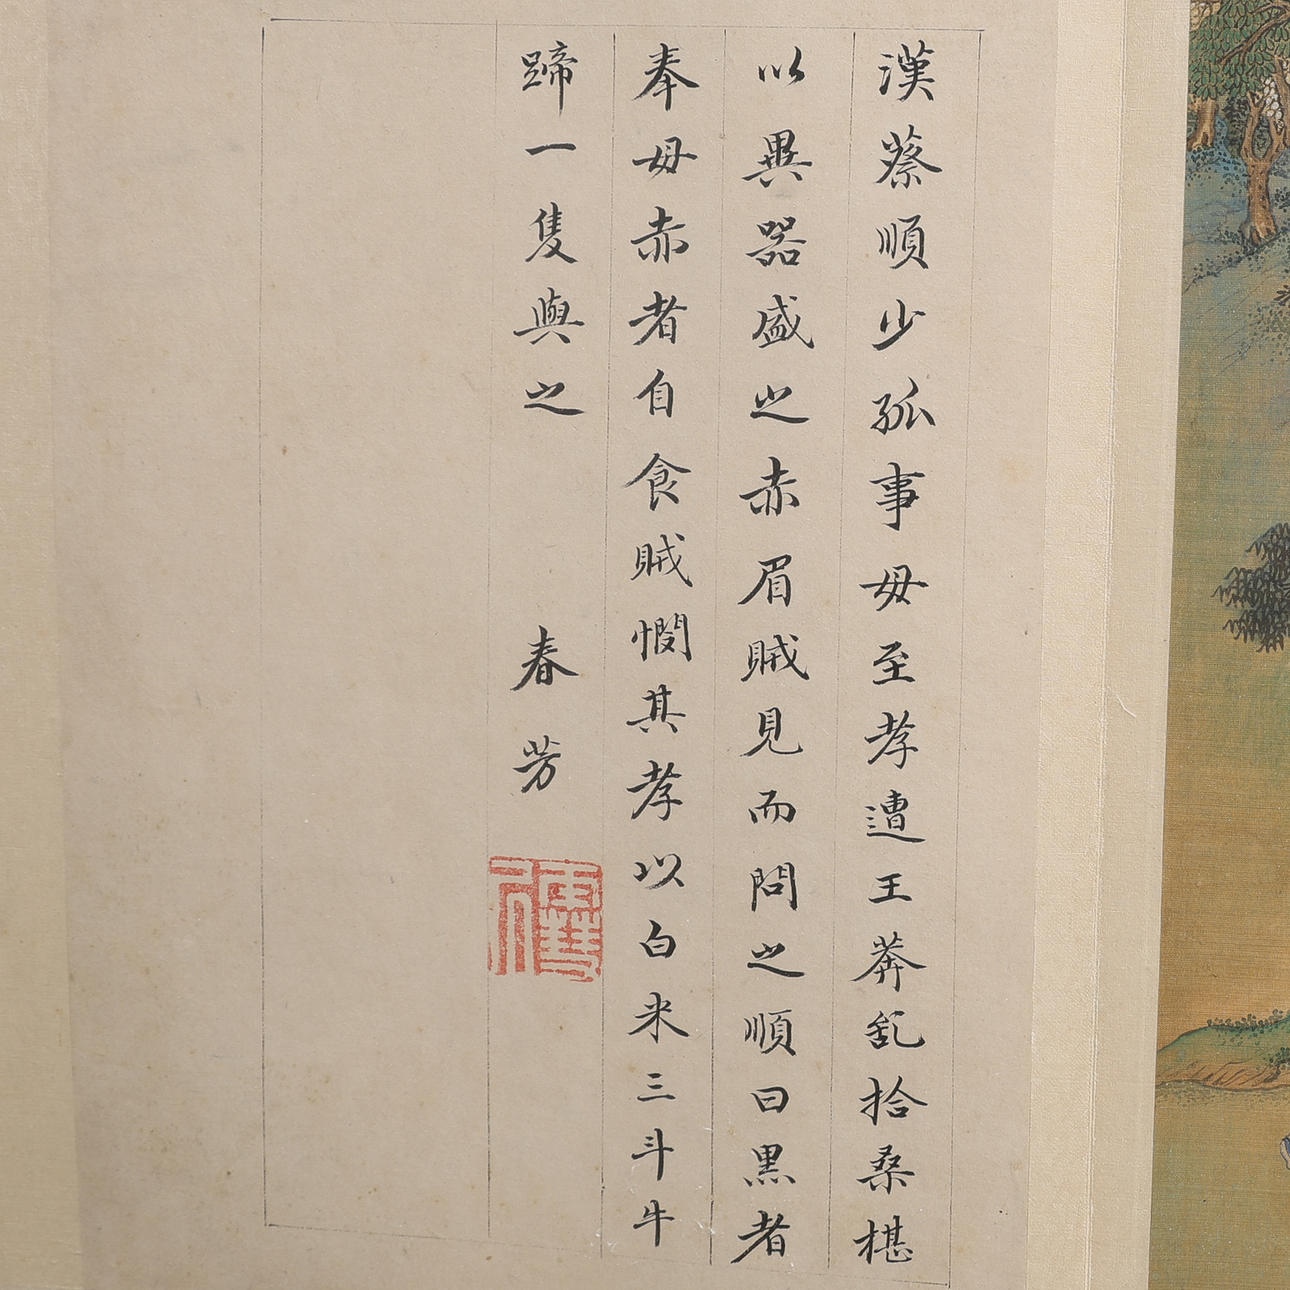 漢蔡順少孤事母至孝遭王莽乱拾桑椹
以異器盛之赤眉賊見而問之順曰黑者
奉母赤者自食賊憫其孝以白米三斗牛
蹄一隻與之 春芳